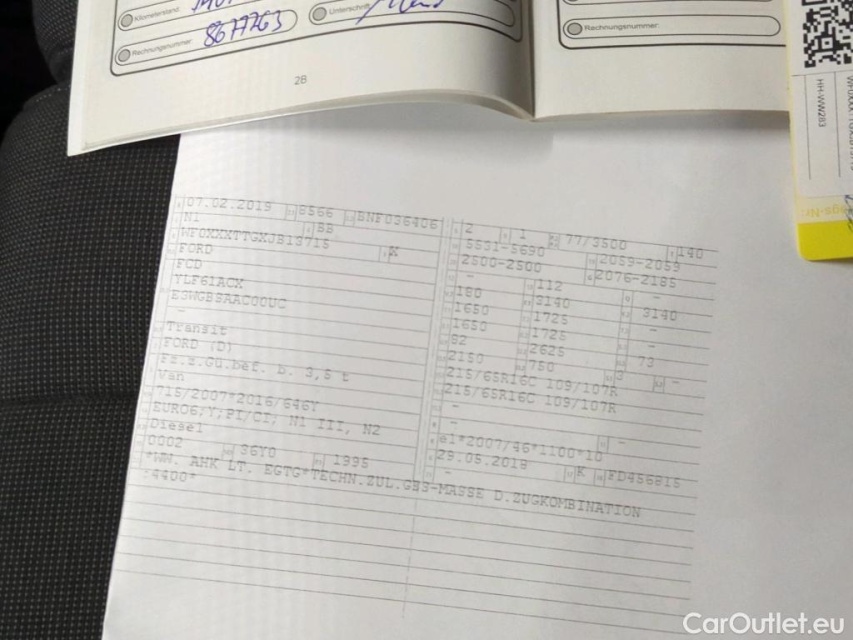 Kilometerstand:
Rechnungsnummer: 8677763
Unterschrift
28
Rechnungsnummer:
HH-WW283
07.02.2019 8566 BNF036406
N1 BB
WF0XXXTTGXJB13715 K
FORD
FCD
YLF61ACX
E5WGBSAAC00UC
Transit
FORD (D)
Fz.z.Gü.bef. b. 3,5 t
Van
715/2007*2016/646Y
EURO6;Y;PI/CI; N1 III, N2
Diesel
0002 36Y0 1995
*WW. AHK LT. EGTG*TECHN.ZUL.GES-MASSE D.ZUGKOMBINATION
:4400*
2 1 77/3500 140
5531-5690 2059-2059
2500-2500 2076-2185
- 112 -
180 3140 3140
1650 1725 -
1650 1725 -
82 2625 73
2150 750 3 -
215/65R16C 109/107R
215/65R16C 109/107R
-
- -
e1*2007/46*1100*10
29.05.2018 K FD456815
-
CarOutlet.eu